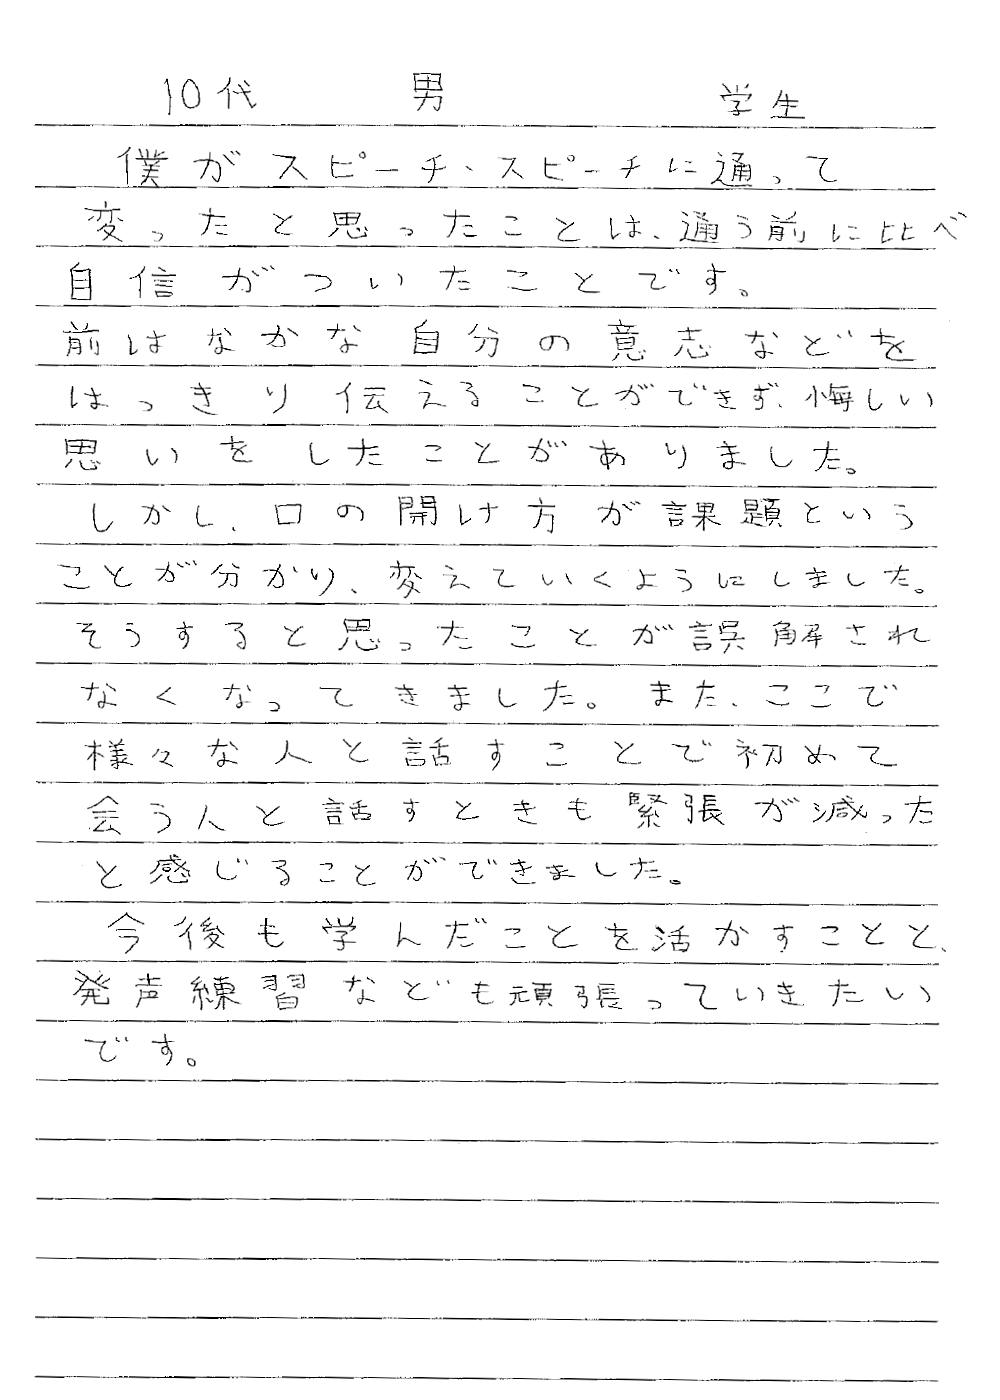 10代 男 学生
僕がスピーチ・スピーチに通って
変ったと思ったことは、通う前に比べ
自信がついたことです。
前はなかな自分の意志などを
はっきり伝えることができず、悔しい
思いをしたことがありました。
しかし、口の開け方が課題という
ことが分かり、変えていくようにしました。
そうすると思ったことが誤解され
なくなってきました。また、ここで
様々な人と話すことで初めて
会う人と話すときも緊張が減った
と感じることができました。
今後も学んだことを活かすことと、
発声練習なども頑張っていきたい
です。